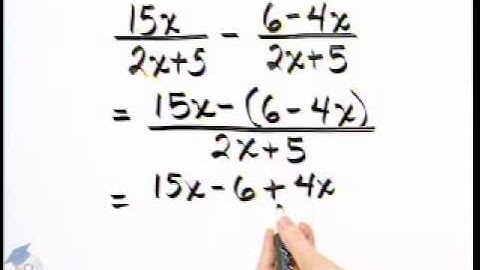 15x/2x+5 - 6-4x/2x+5
= 15x-(6-4x)/2x+5
= 15x-6+4x